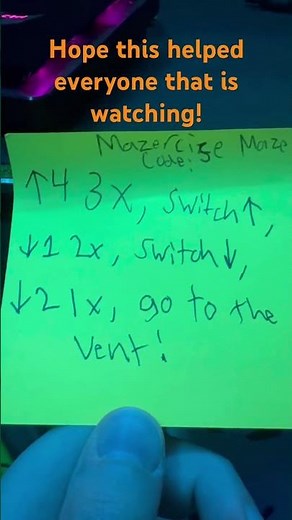 Hope this helped
everyone that is
watching!
Mazercise Maze
Code:
↑4 3x, Switch↑,
↓1 2x, Switch↓,
↓2 1x, go to the
Vent!